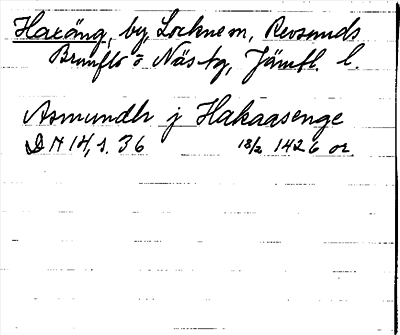 Haxäng, by, Lockne sn, Revsunds
Brunflo o Näs tg, Jämtl. l.
Asmundh j Hakaasenge
DN 14, s. 36 18/2 1426 or.